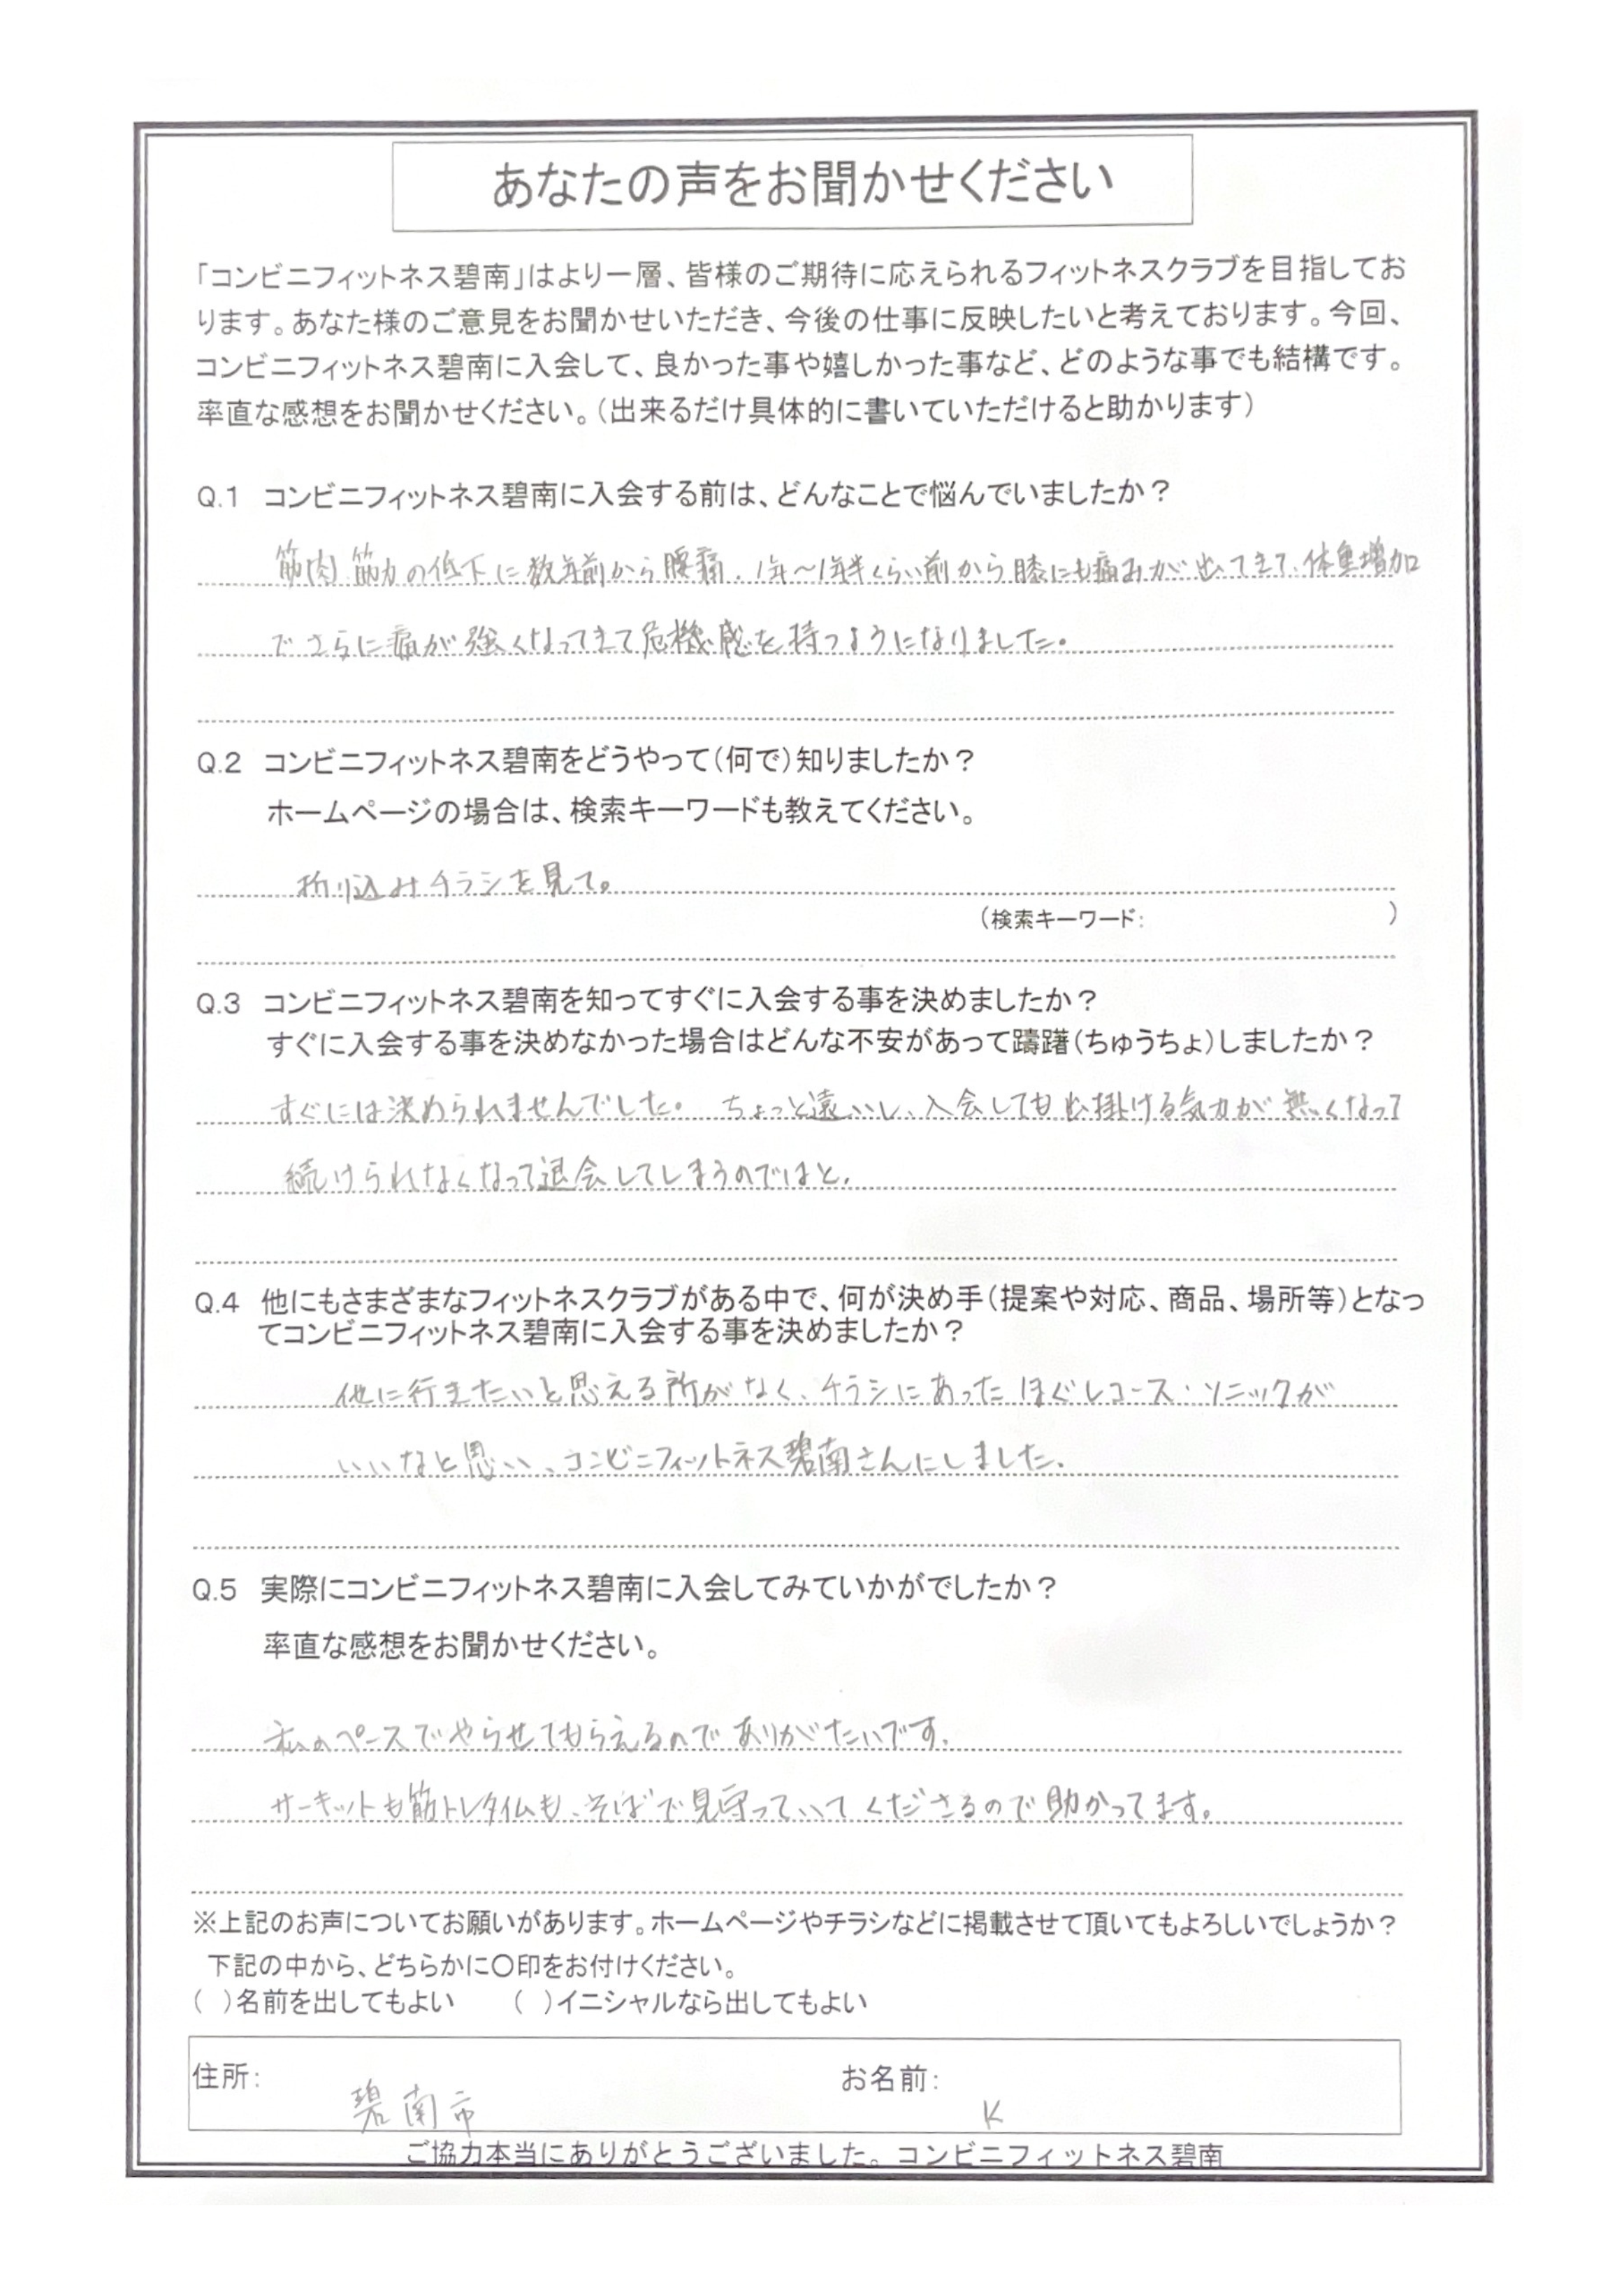 あなたの声をお聞かせください
「コンビニフィットネス碧南」はより一層、皆様のご期待に応えられるフィットネスクラブを目指してお
ります。あなた様のご意見をお聞かせいただき、今後の仕事に反映したいと考えております。今回、
コンビニフィットネス碧南に入会して、良かった事や嬉しかった事など、どのような事でも結構です。
率直な感想をお聞かせください。（出来るだけ具体的に書いていただけると助かります）
Q.1 コンビニフィットネス碧南に入会する前は、どんなことで悩んでいましたか？
筋肉筋力の低下に数年前から腰痛、1年〜1年半くらい前から膝にも痛みが出てきて、体重増加
でさらに痛が強くなってきて危機感を持つようになりました。
Q.2 コンビニフィットネス碧南をどうやって（何で）知りましたか？
ホームページの場合は、検索キーワードも教えてください。
折り込みチラシを見て。
（検索キーワード： ）
Q.3 コンビニフィットネス碧南を知ってすぐに入会する事を決めましたか？
すぐに入会する事を決めなかった場合はどんな不安があって躊躇（ちゅうちょ）しましたか？
すぐには決められませんでした。ちょっと遠いし、入会しても出掛ける気力が無くなって
続けられなくなって退会してしまうのではと、
Q.4 他にもさまざまなフィットネスクラブがある中で、何が決め手（提案や対応、商品、場所等）となっ
てコンビニフィットネス碧南に入会する事を決めましたか？
他に行きたいと思える所がなく、チラシにあったほぐしコース・ソニックが
いいなと思い、コンビニフィットネス碧南さんにしました。
Q.5 実際にコンビニフィットネス碧南に入会してみていかがでしたか？
率直な感想をお聞かせください。
私のペースでやらせてもらえるのでありがたいです。
サーキットも筋トレタイムも、そばで見守っていてくださるので助かってます。
※上記のお声についてお願いがあります。ホームページやチラシなどに掲載させて頂いてもよろしいでしょうか？
下記の中から、どちらかに〇印をお付けください。
（ ）名前を出してもよい （ ）イニシャルなら出してもよい
住所： 碧南市 お名前： K
ご協力本当にありがとうございました。コンビニフィットネス碧南